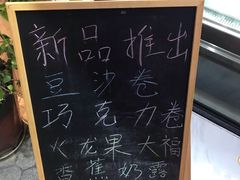 新品推出
豆沙卷
巧克力卷
火龙果大福
香蕉奶露